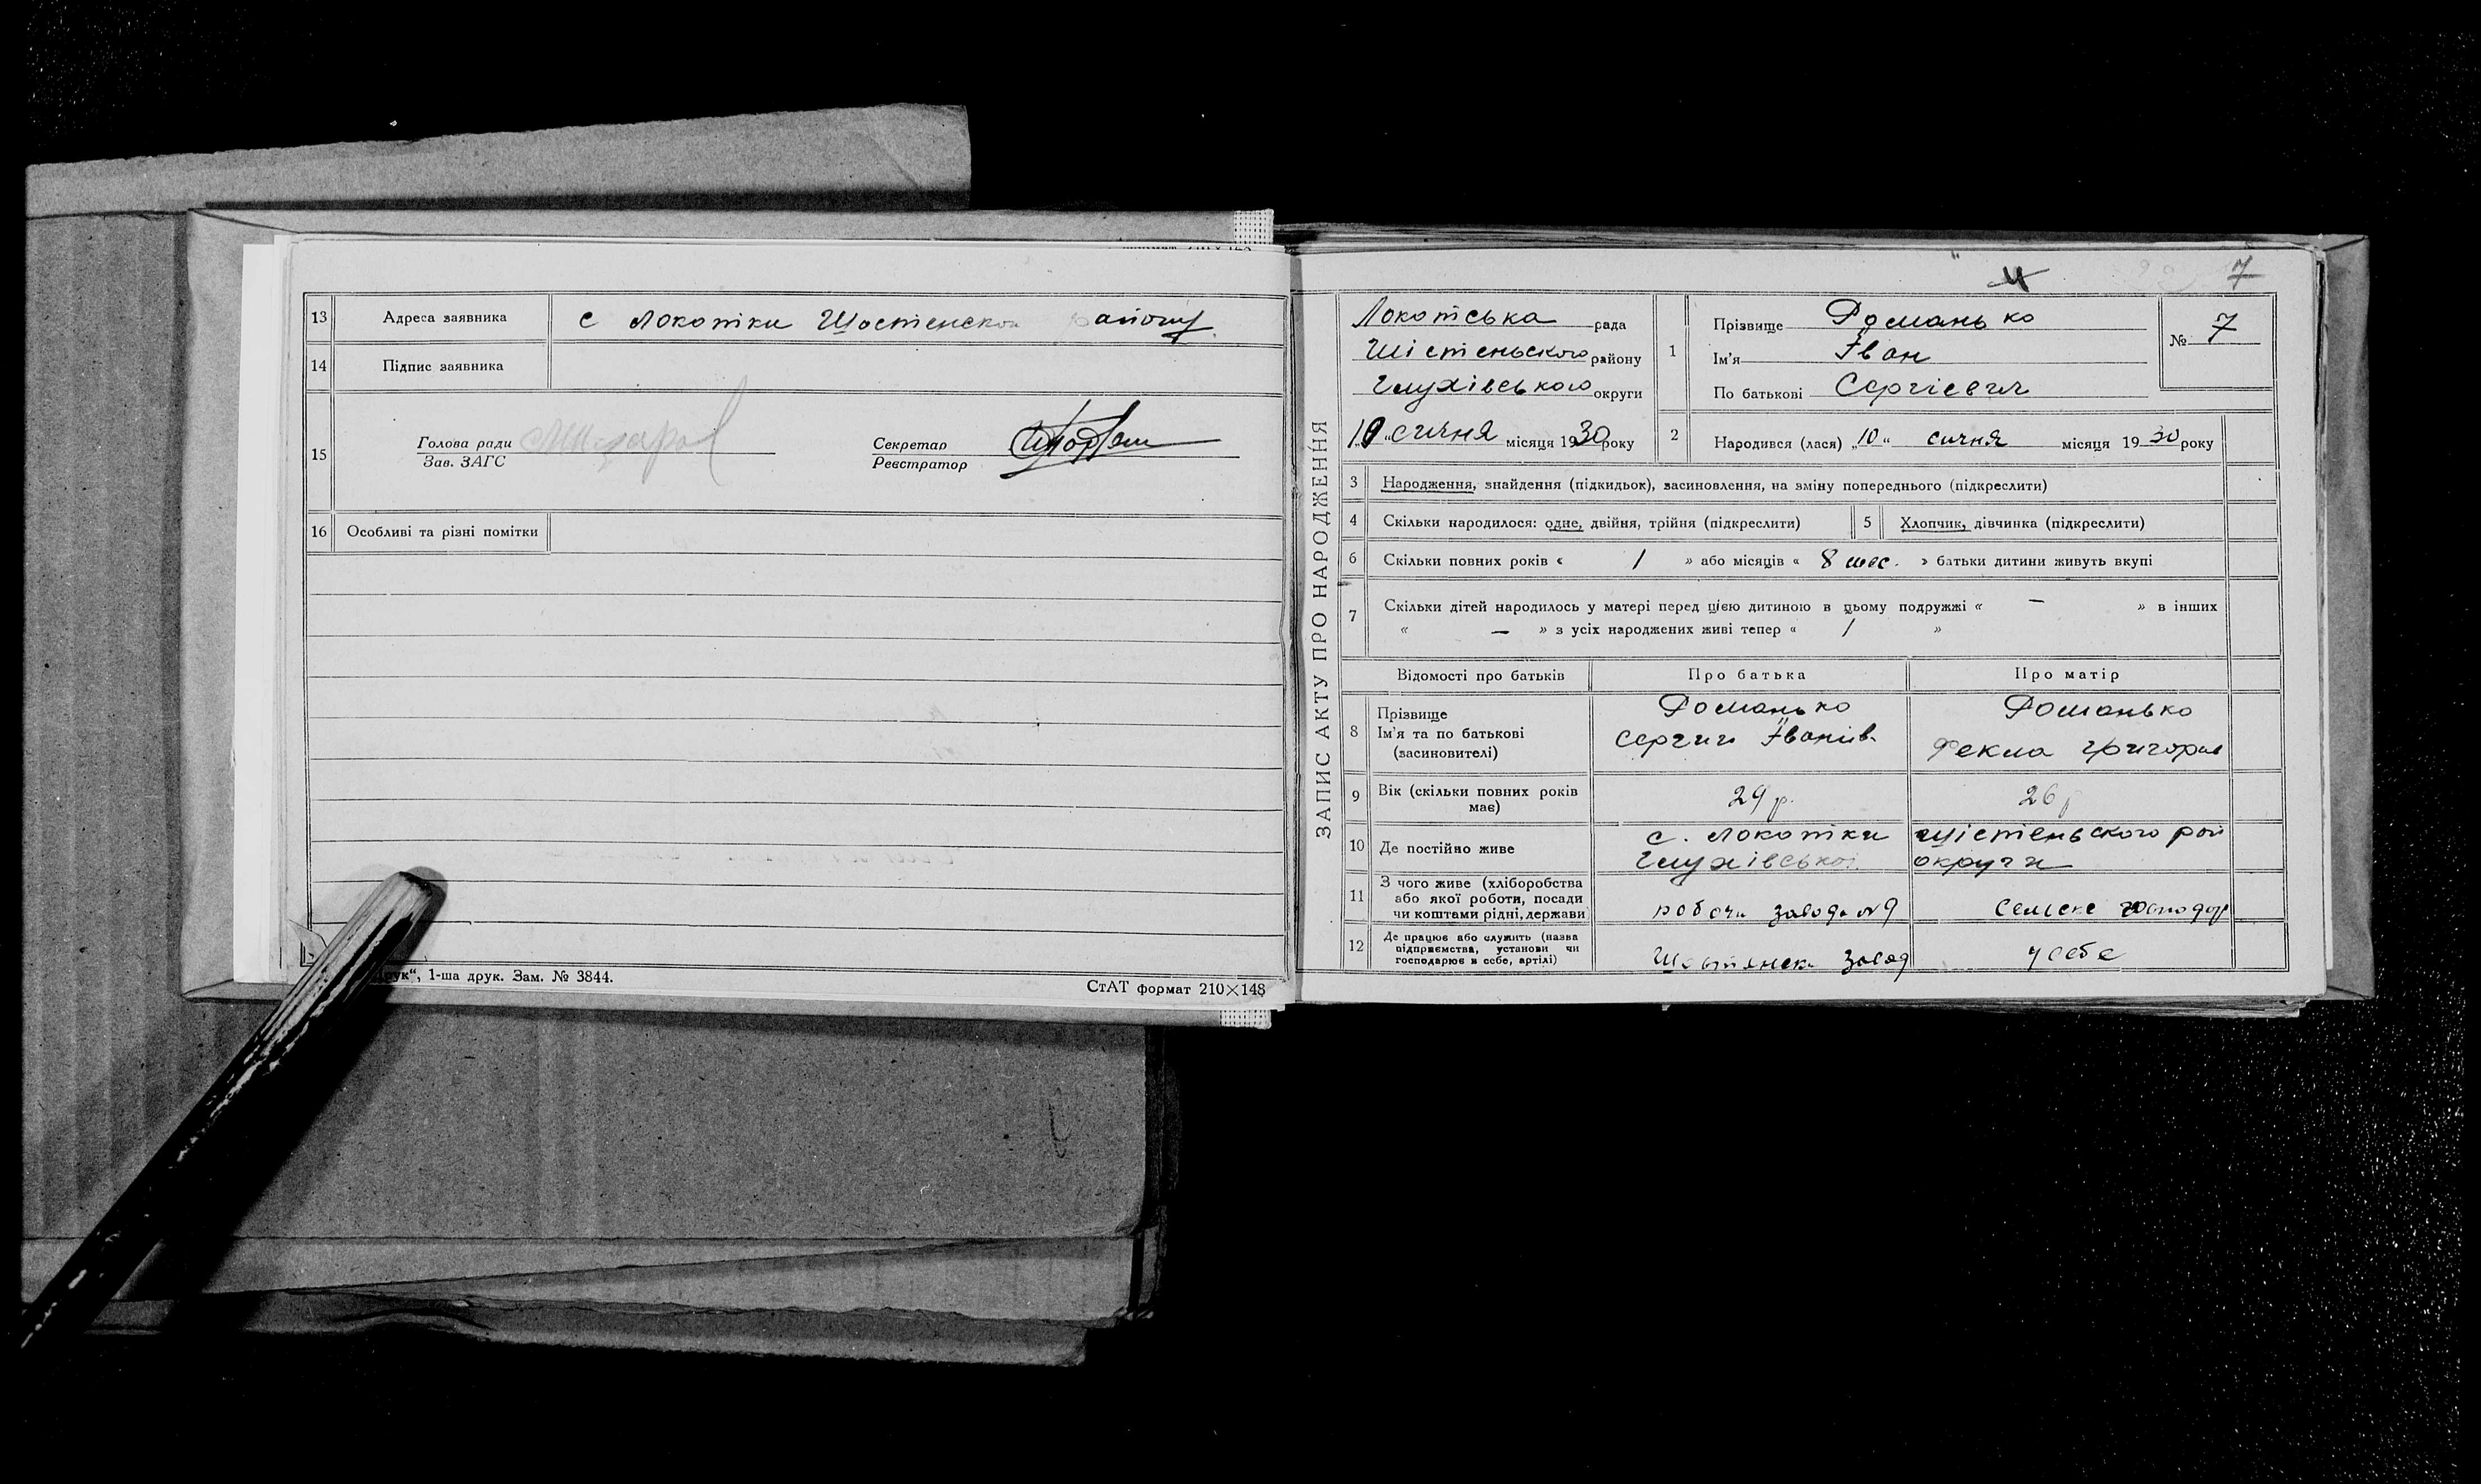 13 Адреса заявника с Локотки Шостенско айону.
14 Підпис заявника
15 Голова ради
Зав. ЗАГС
Секретар
Реєстратор
16 Особливі та різні помітки
рук“, 1-ша друк. Зам. № 3844.
СтАТ формат 210×148
7
ЗАПИС АКТУ ПРО НАРОДЖЕННЯ
Локотська рада
Шістенського району
Глухівського округи
10 „ січня місяця 1930 року
1 Прізвище Романько
Ім'я Іван
По батькові Сергієвич
№ 7
2 Народився (лася) „10“ сичня місяця 1930 року
3 Народження, знайдення (підкидьок), засиновлення, на зміну попереднього (підкреслити)
4 Скільки народилося: одне, двійня, трійня (підкреслити)
5 Хлопчик, дівчинка (підкреслити)
6 Скільки повних років « 1 » або місяців « 8 мес. » батьки дитини живуть вкупі
7 Скільки дітей народилось у матері перед цією дитиною в цьому подружжі « — » в інших
« — » з усіх народжених живі тепер « 1 »
Відомості про батьків Про батька Про матір
8 Прізвище
Ім'я та по батькові
(засиновителі)
Романько
Сергий Іванів.
Романько
Фекла Григоров
9 Вік (скільки повних років
має)
29 р.
26 р
10 Де постійно живе
с. Локотки Шістенського рай
Глухівської округи
11 З чого живе (хліборобства
або якої роботи, посади
чи коштами рідні, держави
робочи завода № 9
Сельске господар
12 Де працює або служить (назва
підприємства, установи чи
господарює в себе, артілі)
Шостенск. завод
у себе